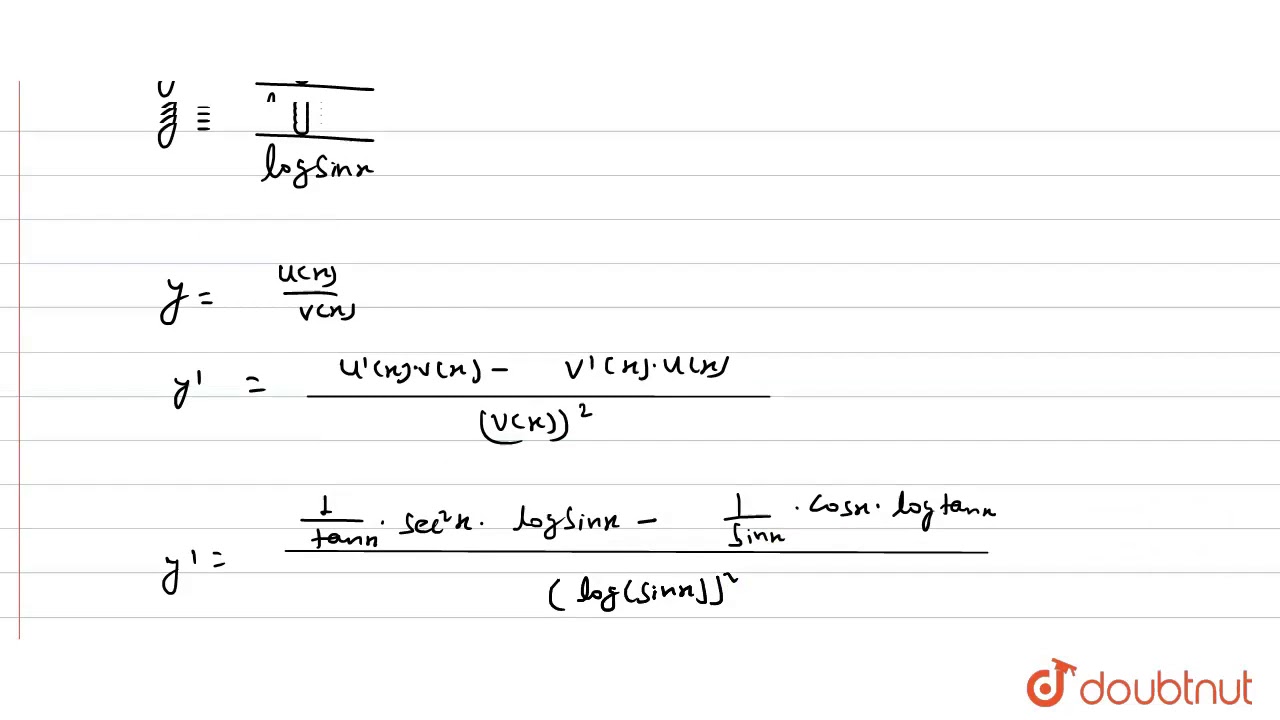 y ≡
log sinx
y = u(x)/v(x)
y' = (u'(x)·v(x) – v'(x)·u(x))/(v(x))²
y' = (1/tanx · sec²x · log sinx – 1/sinx · cosx · log tanx)/(log(sinx))²
doubtnut